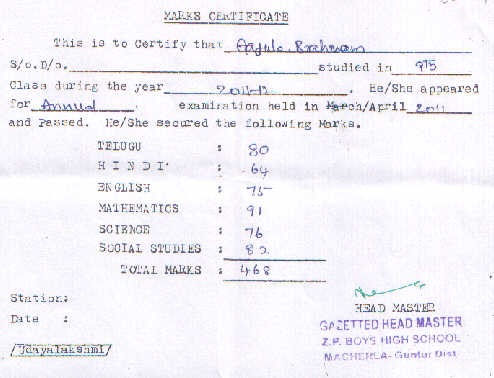 MARKS CERTIFICATE
This is to Certify that
S/o.D/o. studied in 9th
Class during the year . He/She appeared
for Annual examination held in March/April 2011
and Passed. He/She secured the following Marks.
TELUGU : 80
H I N D I : 64
ENGLISH : 75
MATHEMATICS : 91
SCIENCE : 76
SOCIAL STUDIES : 82
TOTAL MARKS : 468
Station:
Date :
HEAD MASTER
GAZETTED HEAD MASTER
Z.P. BOYS HIGH SCHOOL
MACHERLA- Guntur Dist.
/Udayalakshmi/